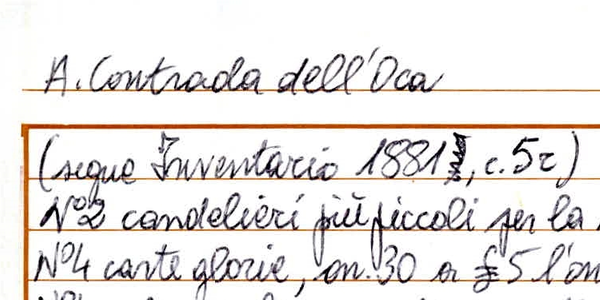 A. Contrada dell'Oca
(segue Inventario 1881, c. 5r)
N° 2 candelieri più piccoli per la
N° 4 carte glorie, on. 30 a £ 5 l'on